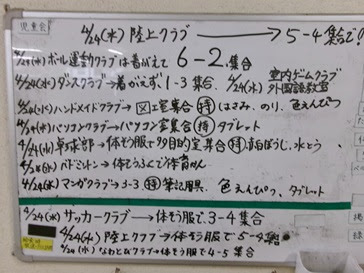 児童会
4/24(水)陸上クラブ → 5-4集合で
4/24(水)ボール運動クラブは着がえて 6-2.集合
4/24(水)ダンスクラブ→着がえず1-3集合. 4/24(水)室内ゲームクラブ
外国語教室
4/24(水)ハンドメイドクラブ→図工室集合 持 はさみ、のり、色えんぴつ
4/24(水)パソコンクラブ→パソコン室集合 持 タブレット
4/24(水)卓球部→体そう服で多目的室集合 持 赤白ぼうし、水とう
4/24(水)バドミントン→体そうふくで体育かん
4/24(水)マンガクラブ→3-3 持 筆記用具、色えんぴつ、タブレット
4/24(水)サッカークラブ→体そう服で、3-4集合
4/24(水)陸上クラブ→体そう服で5-4集合
4/24(水)なわとびクラブ→体そう服で4-5集合